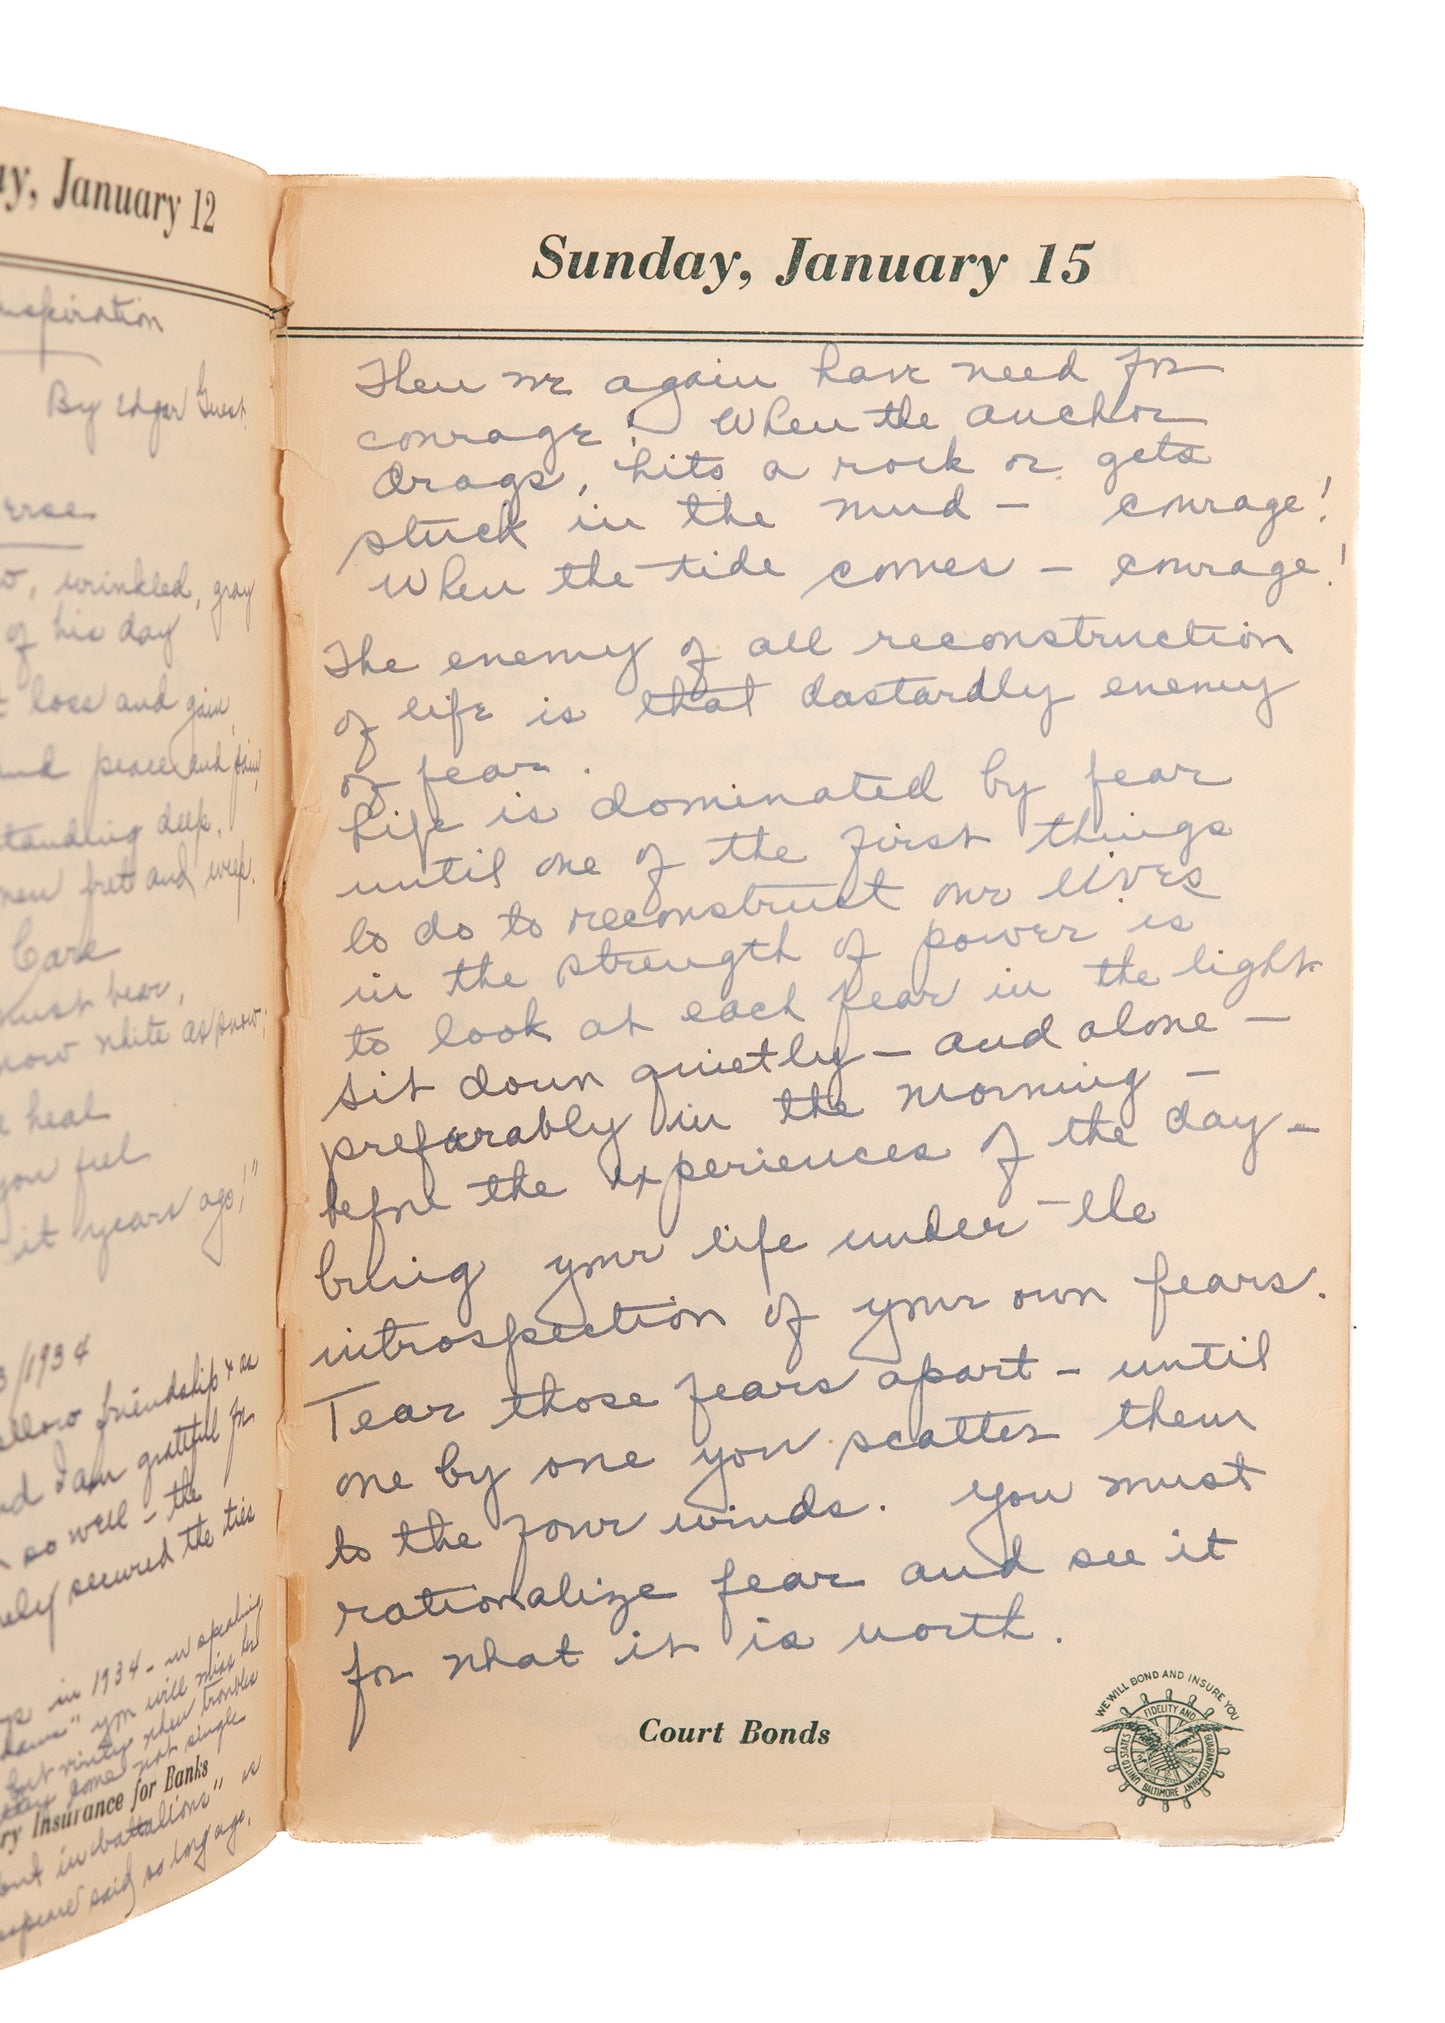 ay, January 12
Inspiration
By Edgar Guest.
erse
o, wrinkled, gray
of his day
t loss and gain,
and peace and pain,
standing deep,
men fret and weep.
Care
must bear,
now white as snow;
e heal
you feel
it years ago!"
3/1934
fellow friendship & as
and I am grateful for
so well - the
ly secured the ties
in 1934 - in speaking
you will miss
when troubles
they come not single
ry Insurance for Banks
but in battalions" as
speare said so long ago.
Sunday, January 15
Then we again have need for
courage! When the anchor
drags, hits a rock or gets
stuck in the mud - courage!
When the tide comes - courage!
The enemy of all reconstruction
of life is that dastardly enemy
of fear.
Life is dominated by fear
until one of the first things
to do to reconstruct our lives
in the strength of power is
to look at each fear in the light
sit down quietly - and alone -
preferably in the morning -
before the experiences of the day -
bring your life under the
introspection of your own fears.
Tear those fears apart - until
one by one you scatter them
to the four winds. You must
rationalize fear and see it
for what it is worth.
Court Bonds
WE WILL BOND AND INSURE YOU
UNITED STATES FIDELITY AND GUARANTY COMPANY
BALTIMORE